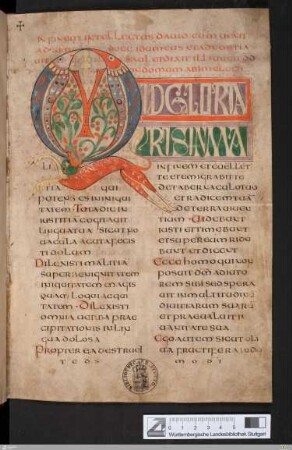 IN FINEM INTELLECTUS DAVID CUM VENIT
DOEC IDUMEUS ET ADNUNTIAVIT
SAUL ET DIXIT ILLI VENIT DAVID
IN DOMUM ABIMELECH
QUID GLORIA
RIS IN MA
LI
TIA QUI
POTENS ES INIQUI
TATEM TOTA DIE IN
IUSTITIA COGITAUIT
LINGUA TUA SICUT NO
UACULA ACUTA FECIS
TI DOLUM
DILEXISTI MALITIA
SUPER BENIGNITATEM
INIQUITATEM MAGIS
QUAM LOQUI AEQUI
TATEM DILEXISTI
OMNIA UERBA PRAE
CIPITATIONIS IN LIN
GUA DOLOSA
PROPTEREA DESTRUET
TE DS
IN FINEM EUELLET
TE ET EMIGRABIT TE
DE TABERNACULO TUO
ET RADICEM TUAM
DE TERRA UIUEN
TIUM UIDEBUNT
IUSTI ET TIMEBUNT
ET SUPER EUM RIDE
BUNT ET DICENT
ECCE HOMO QUI NON
POSUIT DM ADIUTO
REM SIBI SED SPERA
UIT IN MULTITUDINE DI
UITIARUM SUARUM
ET PRAEUALUIT IN
UANITATE SUA
EGO AUTEM SICUT OLI
UA FRUCTIFERA IN DO
MO DI
0 1 2 3 4 5
Württembergische Landesbibliothek Stuttgart